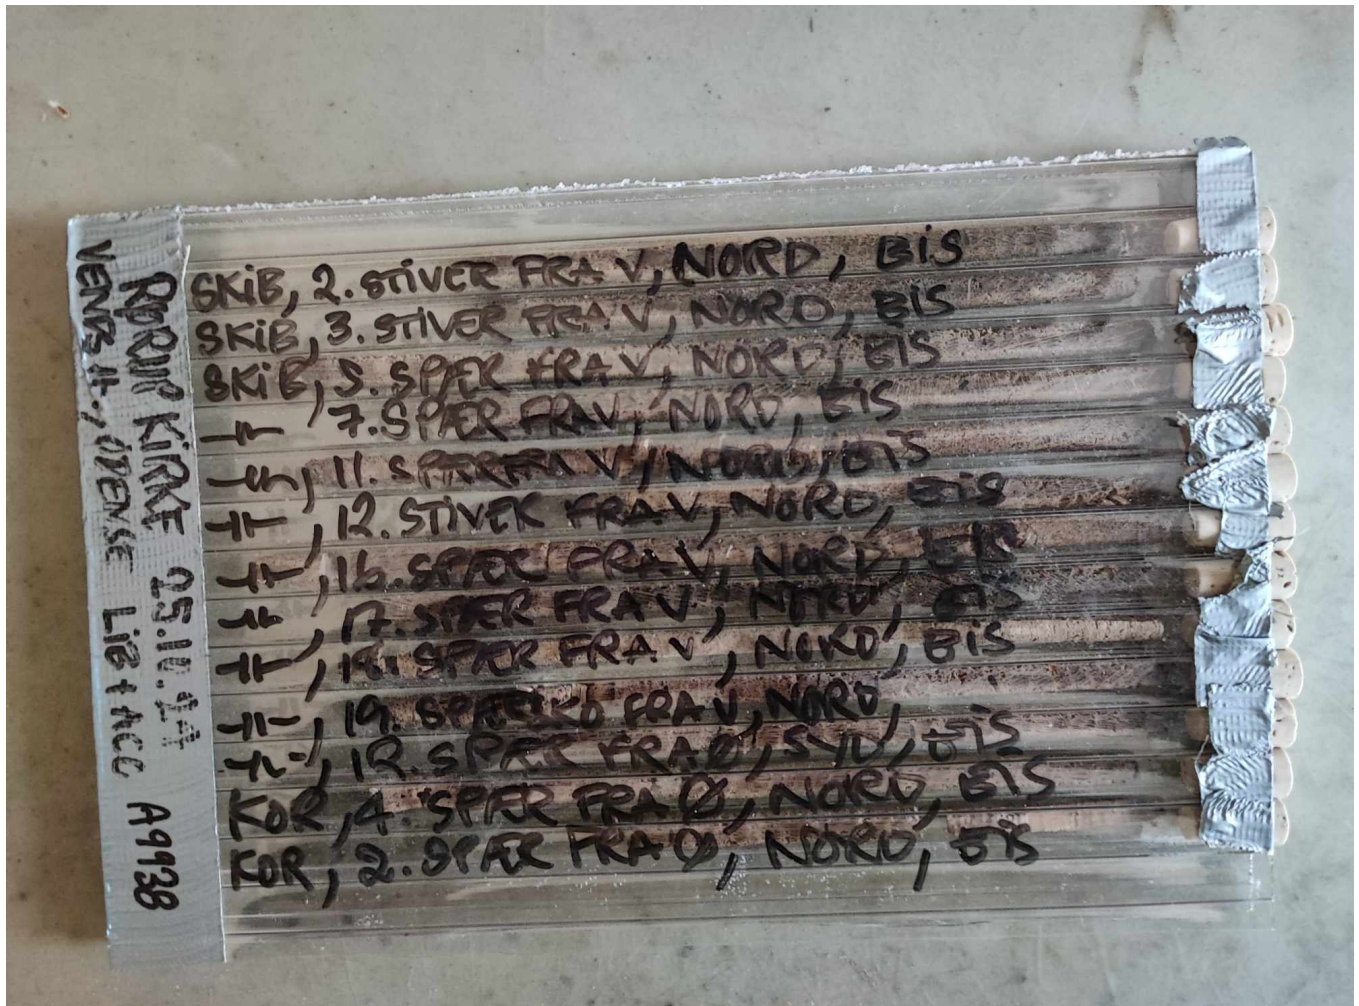 RØRUP KIRKE 25.10.24
VENDS H., ODENSE LiB + ACC A9938
SKiB, 2. STiVER FRA V, NORD, EiS
SKiB, 3. STiVER FRA V, NORD, EiS
SKiB, 5. SPÆR FRA V, NORD, EiS
-11- 7. SPÆR FRA V, NORD, EiS
-11-, 11. SPÆR FRA V, NORD, EiS
-11-, 12. STiVER FRA V, NORD, EiS
-11-, 16. SPÆR FRA V, NORD, EiS
-11-, 17. SPÆR FRA V, NORD, EiS
-11-, SPÆR FRA V, NORD, EiS
-11-, 19. SPÆRSKO FRA V, NORD,
-11-, 12. SPÆR FRA Ø, SYD, EiS
KOR, 4. SPÆR FRA Ø, NORD, EiS
KOR, 2. SPÆR FRA Ø, NORD, EiS